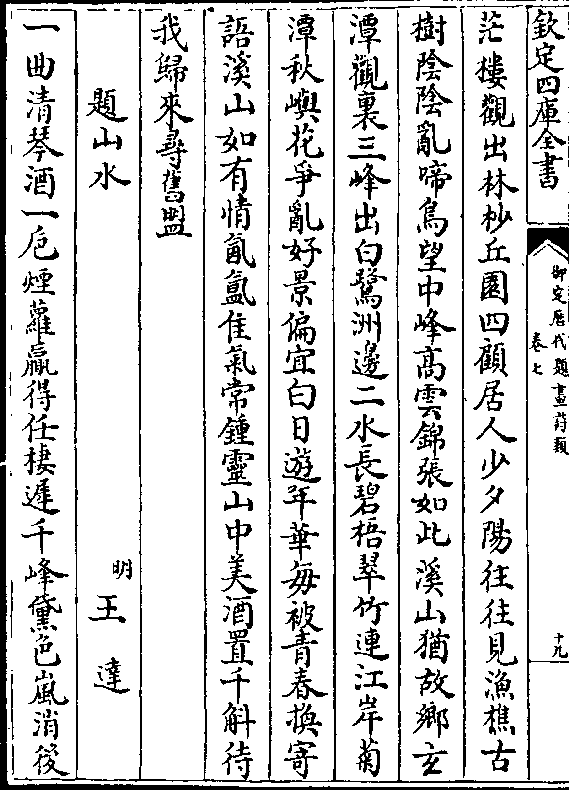 欽定四庫全書
御定歷代題畫詩類
卷七
十九
茫樓觀出林杪丘園四顧居人少夕陽往往見漁樵古
樹陰陰亂啼鳥望中峰高雲錦張如此溪山猶故鄉玄
潭觀裏三峰出白鷺洲邊二水長碧梧翠竹連江岸菊
潭秋嶼花爭亂好景偏宜白日遊年華每被青春換寄
語溪山如有情氤氳佳氣常鍾靈山中美酒置千斛待
我歸來尋舊盟
題山水
明 王達
一曲清琴酒一巵煙蘿贏得任棲遲千峰黛色嵐消後